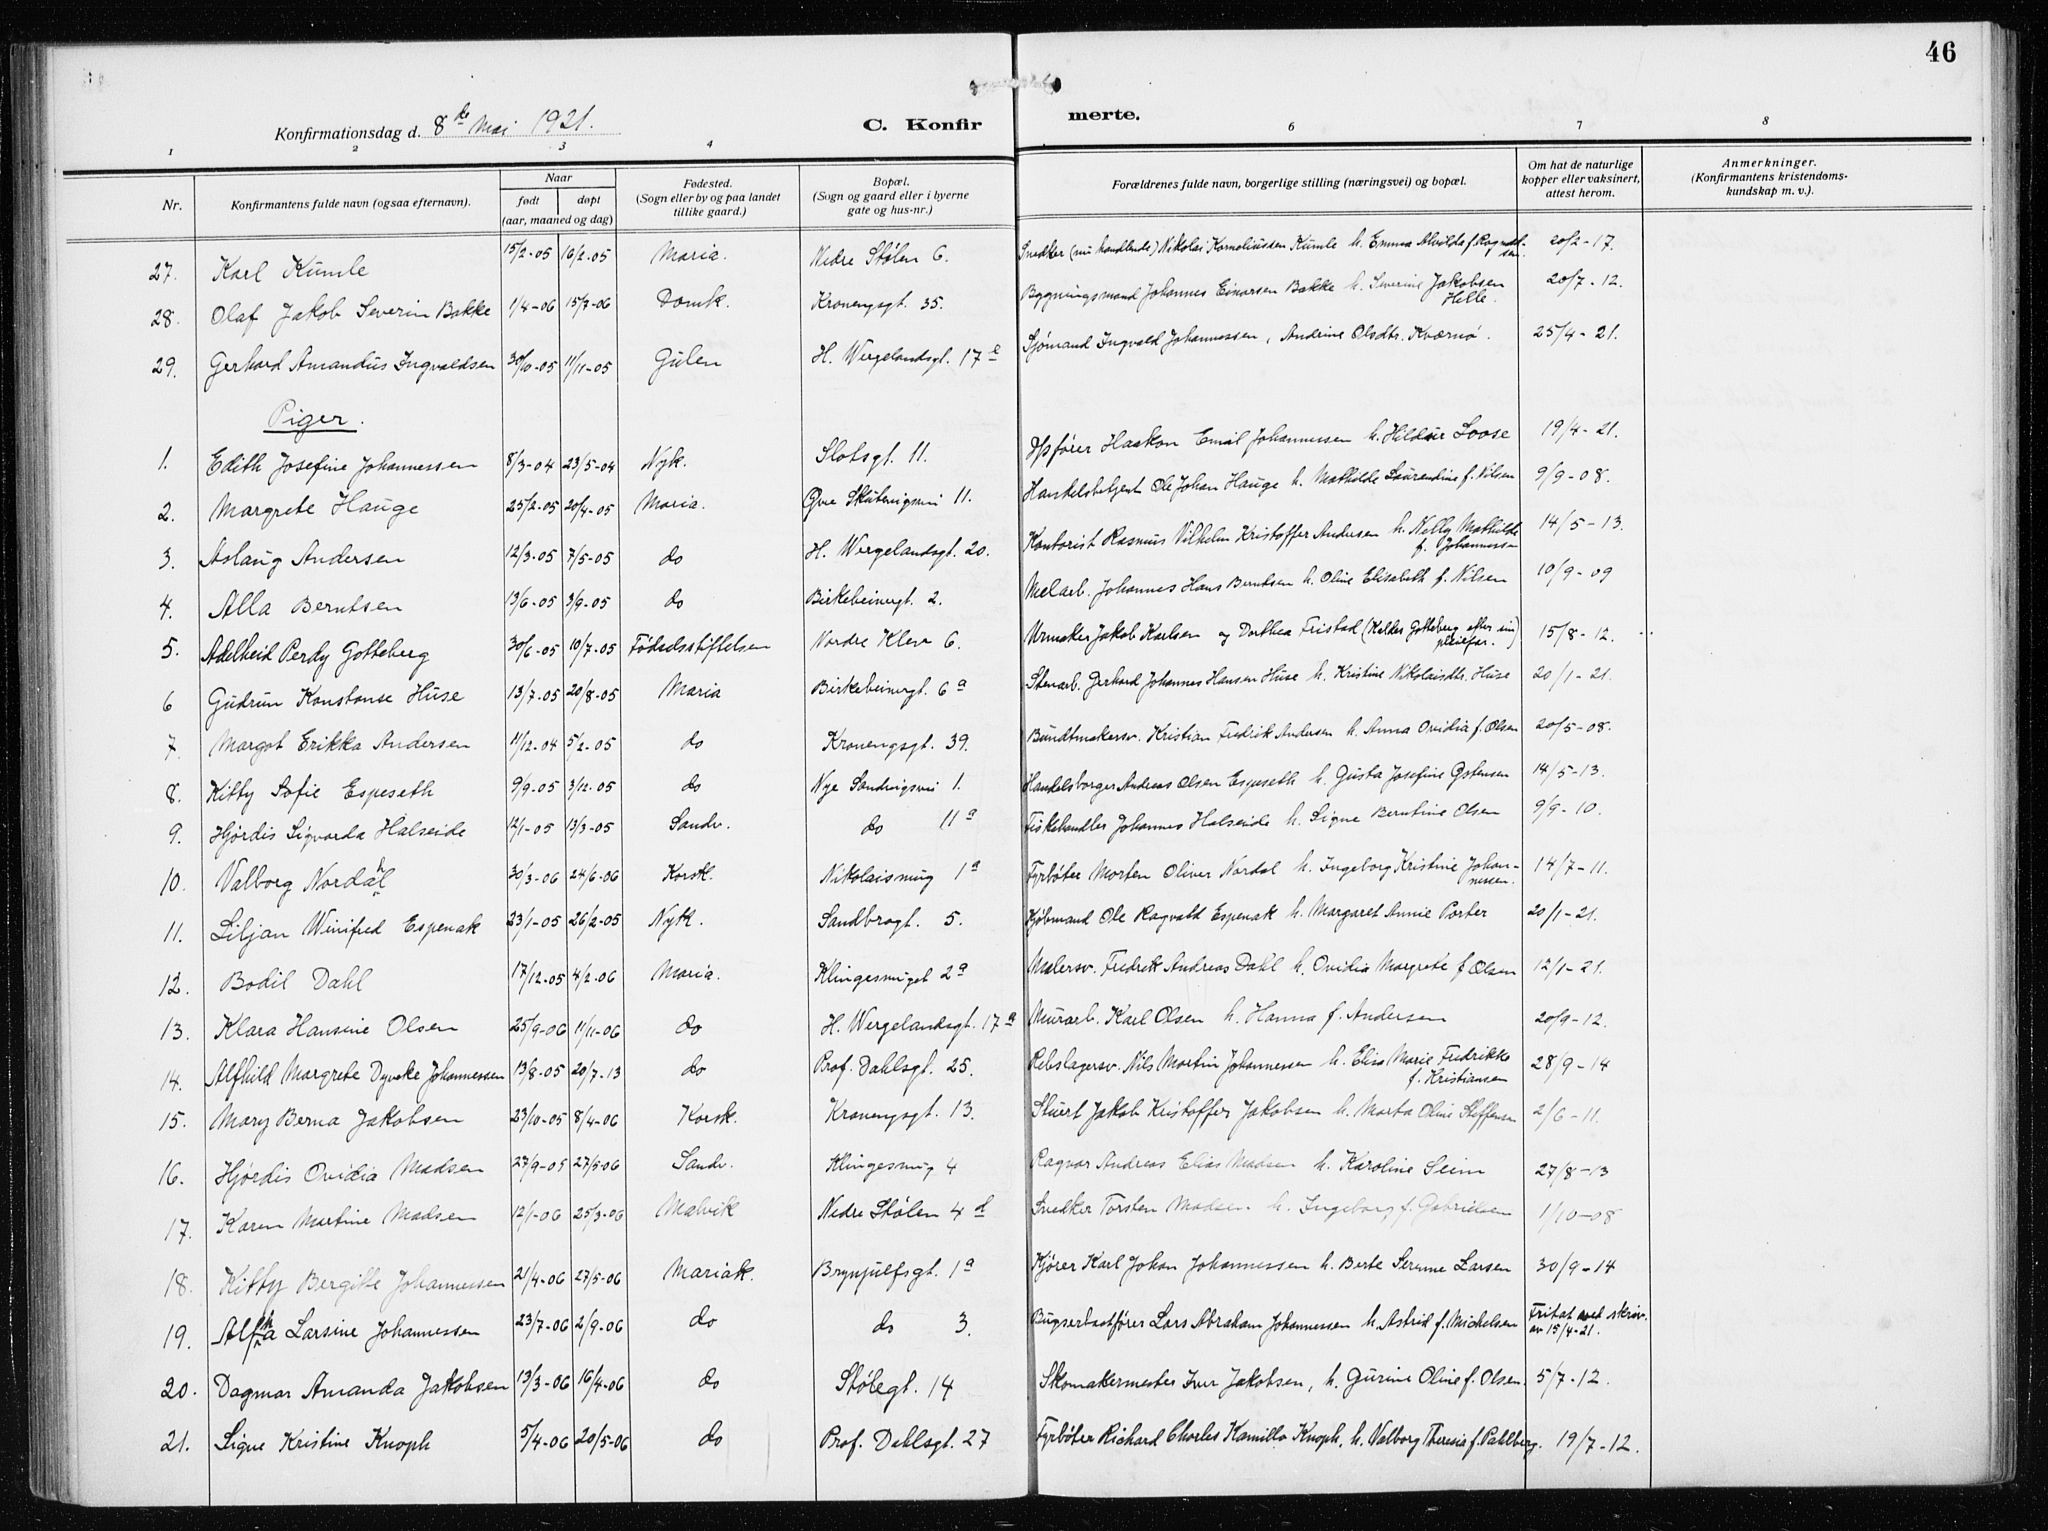 46
Konfirmationsdag d. 8de Mai 1921. C. Konfirmerte.
1 2 3 4 5 6 7 8
Nr. Konfirmantens fulde navn (ogsaa efternavn). Naar født døpt (aar, maaned og dag) Fødested. (Sogn eller by og paa landet tillike gaard.) Bopæl. (Sogn og gaard eller i byerne gate og hus-nr.) Forældrenes fulde navn, borgerlige stilling (næringsvei) og bopæl. Om hat de naturlige kopper eller vaksinert, attest herom. Anmerkninger. (Konfirmantens kristendomskundskap m. v.).
27. Karl Kumle 15/2-05 16/2-05 Maria. Nedre Stølen 6. Snedker (nu handlende) Nikolai Korneliussen Kumle h. Emma Alvilda f. 20/2-17.
28. Olaf Jakob Severin Bakke 1/4-06 15/7-06 Domk. Kronengsgt. 35. Bygningsmand Johannes Einarsen Bakke h. Severine Jakobsen Helle. 20/7-12.
29. Gerhard Amandus Ingvaldsen 30/10-05 11/11-05 Gulen H. Wergelandsgt. 17 e Sjømand Ingvald Johannessen, Andrine Olsdtr. Kværnø. 25/4-21.
Piger.
1. Edith Josefine Johannessen 8/3-04 23/5-04 Nyk. Slotsgt. 11. Haakon Emil Johannessen h. Hildur Loose 19/4-21.
2. Margrete Hauge 25/2-05 20/4-05 Maria. Øvre Skutevigsvei 11. Handelsbetjent Ole Johan Hauge h. Mathilde Laurendine f. Nilsen 9/9-08.
3. Aslaug Andersen 12/3-05 7/5-05 do H. Wergelandsgt. 20. Kontorist Rasmus Vilhelm Kristoffer Andersen h. Nelly Mathilde f. Johannessen 14/5-13.
4. Alla Berntsen 13/6-05 3/9-05 do Birkebeinergt. 2. Melarb. Johannes Hans Berntsen h. Oline Elisabeth f. Nilsen 10/9-09
5. Adelheid Perdy Gotteberg 30/6-05 10/7-05 Fødselsstiftelsen Nordre Klev 6. Urmaker Jakob Karlsen og Dorthea Fristad (Kaldes Gotteberg efter sin pleiefar.) 15/8-12.
6 Gudrun Konstanse Huse 13/7-05 20/8-05 Maria Birkebeinergt. 6 a Stenarb. Gerhard Johannes Hansen Huse h. Kristine Nikolaisdtr. Huse 20/1-21.
7. Margot Erikka Andersen 11/12-04 5/2-05 do Kronengsgt. 39. Bundtmakersv. Kristian Fredrik Andersen h. Anna Ovidia f. Olsen 20/5-08.
8. Kitty Sofie Espeseth 9/9-05 3/12-05 do Nye Sandvigsvei 1. Handelsborger Andreas Olsen Espeseth h. Gusta Josefine Østensen 14/5-13.
9. Hjørdis Sigvarda Halseide 12/1-05 13/3-05 Sandv. do 11 a Fiskehandler Johannes Halseide h. Signe Berntine Olsen 9/9-10.
10. Valborg Nordahl 30/3-06 24/6-06 Korsk. Nikolaismug 1 a Fyrbøter Morten Oliver Nordal h. Ingeborg Kristine Johannessen. 14/7-11.
11. Liljan Winifred Espenak 23/1-05 26/2-05 Nytk. Sandbrogt. 5. Kjøbmand Ole Ragvald Espenak h. Margaret Annie Porter 20/1-21.
12. Bodil Dahl 17/12-05 4/2-06 Maria. Klingesmuget 2 a Malersv. Fredrik Andreas Dahl h. Ovidia Margrete f. Olsen 12/1-21.
13. Klara Hansine Olsen 25/9-06 11/11-06 do H. Wergelandsgt. 17 a Murarb. Karl Olsen h. Hanna f. Andersen 20/9-12.
14. Alfhild Margrete Dyveke Johannessen 13/8-05 20/7-13 do Prof. Dahlsgt. 25. Rebslagersv. Nils Martin Johannessen h. Elisa Marie Fredrikke f. Kristiansen 28/9-14
15. Mary Berna Jakobsen 23/10-05 8/4-06 Korsk. Kronengsgt. 13. Stuert Jakob Kristoffer Jakobsen h. Marta Oline Steffensen 2/6-11.
16. Hjørdis Ovidia Madsen 27/9-05 27/5-06 Sandv. Klingesmug 4 Ragvar Andreas Elias Madsen h. Karoline Seim 27/8-13
17. Karen Martine Madsen 12/1-06 25/3-06 Malvik Nedre Stølen 4 d Snedker Torsten Madsen h. Ingeborg f. Gabrielsen 1/10-08
18. Kitty Bergitte Johannessen 21/4-06 27/5-06 Mariak. Brynjulfsgt. 1 a Kjører Karl Johan Johannessen h. Berte Serene Larsen 30/9-14
19. Alfha Larsine Johannessen 23/7-06 2/9-06 do do 3. Bugserbaatfører Lars Abraham Johannessen h. Astrid f. Mickelsen Fritat ved skriv. av 15/4-21.
20. Dagmar Amanda Jakobsen 13/3-06 16/4-06 do Stølegt. 14 Skomakermester Iver Jakobsen, h. Gurine Oline f. Olsen. 5/7-12.
21. Signe Kristine Knoph 5/4-06 20/5-06 do Prof. Dahlsgt. 27 Fyrbøter Richard Charles Kamillo Knoph, h. Valborg Theresia f. Pahlberg. 19/7-12.